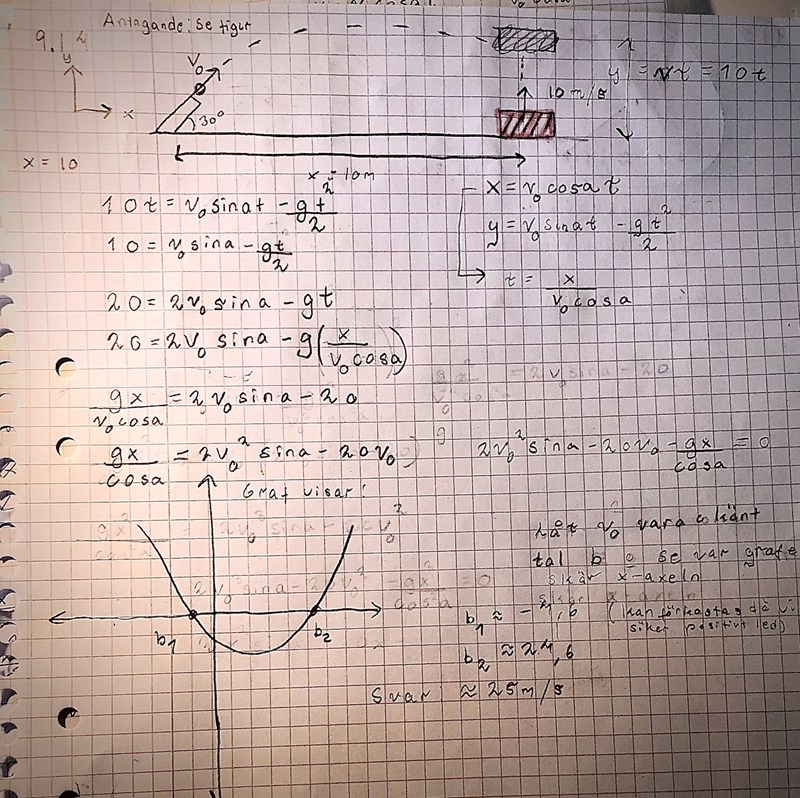 Antagande: se figur
9.12
y
x
V₀
30°
10 m/s
y = vt = 10t
x = 10
x = 10m
10t = v₀ sina t - gt²/2
10 = v₀ sina - gt/2
20 = 2v₀ sina - gt
20 = 2v₀ sina - g(x/(v₀ cosa))
gx/(v₀ cosa) = 2v₀ sina - 20
gx/cosa = 2v₀² sina - 20v₀
x = v₀ cosa t
y = v₀ sina t - gt²/2
t = x/(v₀ cosa)
2v₀² sina - 20v₀ - gx/cosa = 0
Graf visar:
b₁
b₂
Låt v₀ vara okänt
tal b o se var grafe
skär x-axeln
(kan förkastas då vi
söker positivt led)
b₂ ≈ 24,6
Svar: ≈ 25 m/s